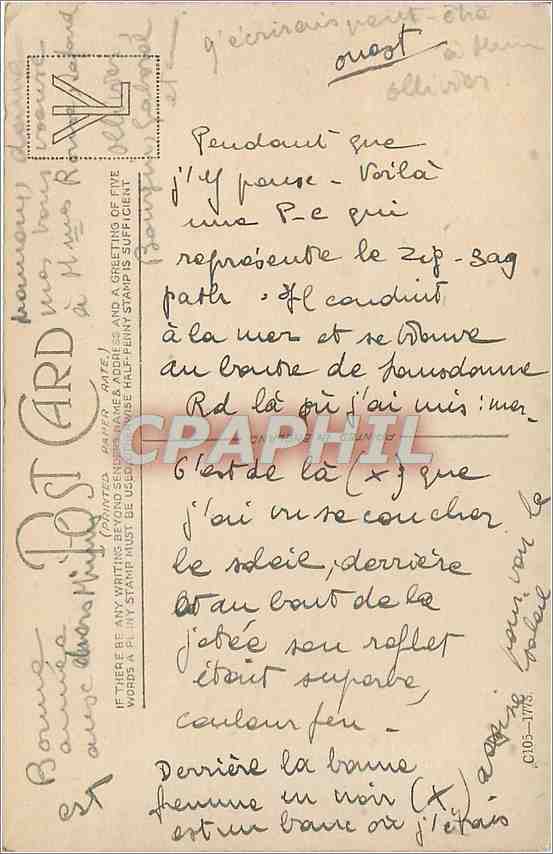 j'écrirais peut-être
à Mme
Ollivier
ouest
Pendant que
j'y pense - Voilà
une P-c qui
représente le zig-zag
path. Il conduit
à la mer et se trouve
au bout de Lansdowne
Rd là où j'ai mis : mer
C'est de là (x) que
j'ai vu se coucher
le soleil, derrière
et au bout de la
jetée son reflet
était superbe,
couleur feu -
Derrière la bonne
femme en noir (x)
est un banc où j'étais
assise pour voir le
soleil
Bonne
année
avec
est
POST CARD
(PRINTED PAPER RATE.)
IF THERE BE ANY WRITING BEYOND SENDER'S NAME & ADDRESS AND A GREETING OF FIVE
WORDS A PENNY STAMP MUST BE USED, OTHERWISE HALF-PENNY STAMP IS SUFFICIENT
PRINTED IN ENGLAND
C105-1773.
CPAPHIL